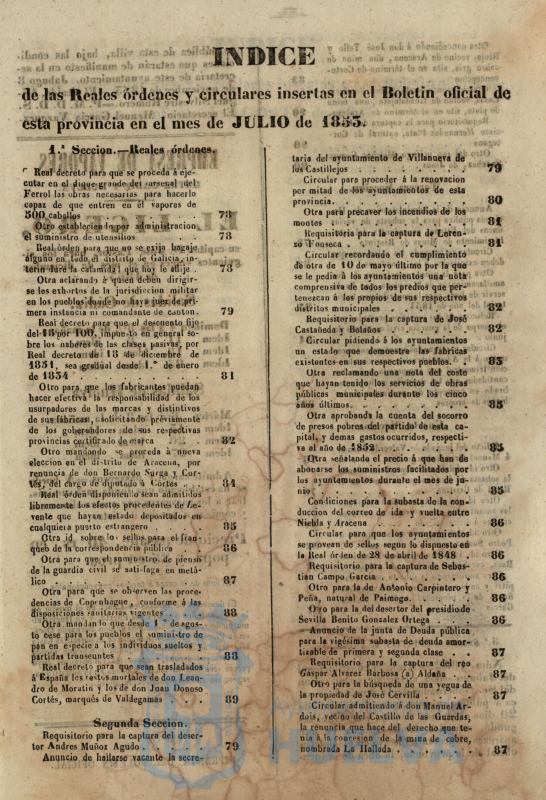 INDICE
de las Reales órdenes y circulares insertas en el Boletin oficial de
esta provincia en el mes de JULIO de 1853.
1.ª Seccion.—Reales órdenes.
Real decreto para que se proceda á eje-
cutar en el dique grande del arsenal del
Ferrol las obras necesarias para hacerlo
capaz de que entren en él vapores de
500 caballos . . . . 78
Otro estableciendo por administracion
el suministro de utensilios . . 78
Real órden para que no se exija bagaje
alguno en todo el distrito de Galicia, in-
terin dure la calamidad que hoy le aflije . 78
Otra aclarando á quien deben dirigir-
se los exhortos de la jurisdiccion militar
en los pueblos donde no haya juez de pri-
mera instancia ni comandante de canton. 79
Real decreto para que el descuento fijo
del 15 por 100, impuesto en general so-
bre los haberes de las clases pasivas, por
Real decreto de 18 de diciembre de
1851, sea gradual desde 1.º de enero
de 1854 . . . . 81
Otro para que los fabricantes puedan
hacer efectiva la responsabilidad de los
usurpadores de las marcas y distintivos
de sus fábricas, solicitando préviamente
de los gobernadores de sus respectivas
provincias certificado de marca . . 82
Otro mandando se proceda á nueva
eleccion en el distrito de Aracena, por
renuncia de don Bernardo Surga y Cor-
tés, del cargo de diputado á Cortes . 84
Real órden disponiendo sean admitidos
libremente los efectos procedentes de Le-
vente que hayan estado depositados en
cualquiera puerto estrangero . . 85
Otra id. sobre los sellos para el fran-
queo de la correspondencia pública . 86
Otra para que el suministro de pienso
de la guardia civil se satisfago en metá-
lico . . . . 87
Otra para que se observen las proce-
dencias de Copenhague, conforme á las
disposiciones sanitarias vigentes . . 88
Otra mandando que desde 1.º de agos-
to cese para los pueblos el suministro de
pan en especie á los individuos sueltos y
partidas transeuntes . . . 88
Real decreto para que sean trasladados
á España los restos mortales de don Lean-
dro de Moratin y los de don Juan Donoso
Cortés, marqués de Valdegamas . . 89
Segunda Seccion.
Requisitorio para la captura del deser-
tor Andres Muñoz Agudo . . . 79
Anuncio de hallarse vacante la secre-
taría del ayuntamiento de Villanueva de
los Castillejos . . . . 79
Circular para proceder á la renovacion
por mitad de los ayuntamientos de esta
provincia . . . . 80
Otra para precaver los incendios de los
montes . . . . 81
Requisitoria para la captura de Loren-
zo Fonseca . . . . 81
Circular recordando el cumplimiento
de otra de 10 de mayo último por la que
se le pedia á los ayuntamientos una nota
comprensiva de todos los predios que per-
tenezcan á los propios de sus respectivos
distritos municipales . . . 82
Requisitorio para la captura de José
Castañeda y Bolaños . . . 82
Circular pidiendo á los ayuntamientos
un estado que demuestre las fábricas
existentes en sus respectivos pueblos. . 83
Otra reclamando una nota del coste
que hayan tenido los servicios de obras
públicas municipales durante los cinco
años últimos . . . . 85
Otra aprobando la cuenta del socorro
de presos pobres del partido de esta ca-
pital, y demas gastos ocurridos, respecti-
va al año de 1852 . . . 85
Otra señalando el precio á que han de
abonarse los suministros facilitados por
los ayuntamientos durante el mes de ju-
nio . . . . 85
Condiciones para la subasta de la con-
duccion del correo de ida y vuelta entre
Niebla y Aracena . . . 86
Circular para que los ayuntamientos
se provean de sellos segun lo dispuesto en
la Real órden de 28 de abril de 1848 . 86
Requisitorio para la captura de Sebas-
tian Campo Garcia . . . 86
Otro para la de Antonio Carpintero y
Peña, natural de Paimogo . . 86
Otro para la del desertor del presidio de
Sevilla Benito Gonzalez Ortega . . 86
Anuncio de la junta de Deuda pública
para la vigésima subasta de deuda amor-
tizable de primera y segunda clase . 87
Requisitorio para la captura del reo
Gaspar Alvarez Barbosa (a) Aldaña . 87
Otro para la búsqueda de una yegua de
la propiedad de José Cervilla . . 87
Circular admitiendo á don Manuel Ar-
dois, vecino del Castillo de las Guardas,
la renuncia que hace del derecho que te-
nia á la concesion de la mina de cobre,
nombrada La Hallada . . . 87
HUELVA